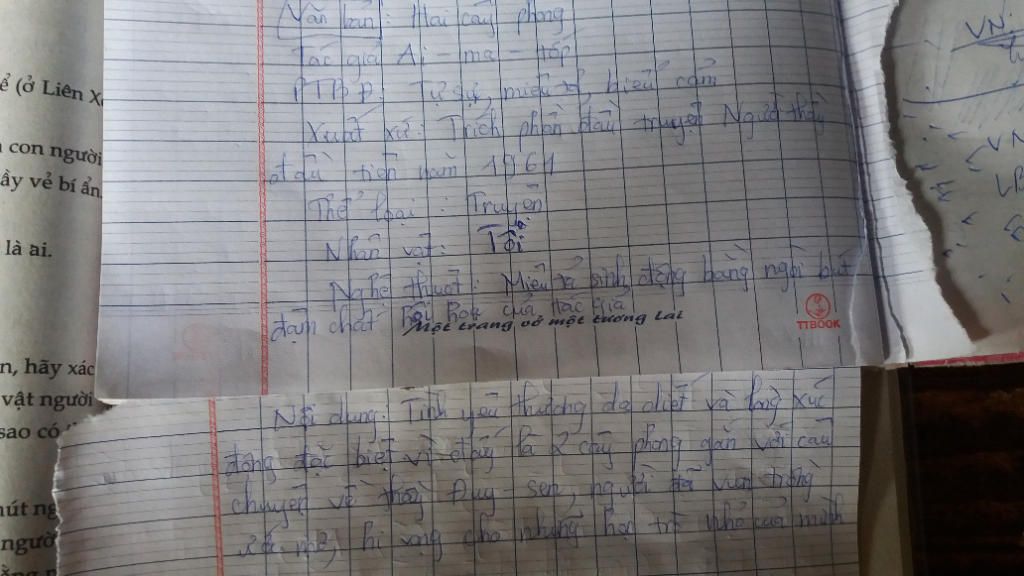 Văn bản: Hai cây phong
Tác giả Ai-ma-tốp
PTBĐ: Tự sự, miêu tả, biểu cảm
Xuất xứ: Trích phần đầu truyện Người thầy
đầu tiên năm 1961
Thể loại: Truyện
Nhân vật: Tôi
Nghệ thuật: Miêu tả sinh động bằng ngòi bút
đậm chất hội hoạ của tác giả
Một trang vở một tương lai
TTBOOK
Nội dung: Tình yêu thương da diết và lòng xúc
động đặc biệt vì đấy là 2 cây phong gắn với câu
chuyện về thầy Đuy-sen, người đã vun trồng
ước mơ, hi vọng cho những học trò nhỏ của mình
ể (ở Liên X
con người
ầy vẻ bí ẩn.
là ai.
n, hãy xác
vật người
sao có
hút
ngư
VN:
VN